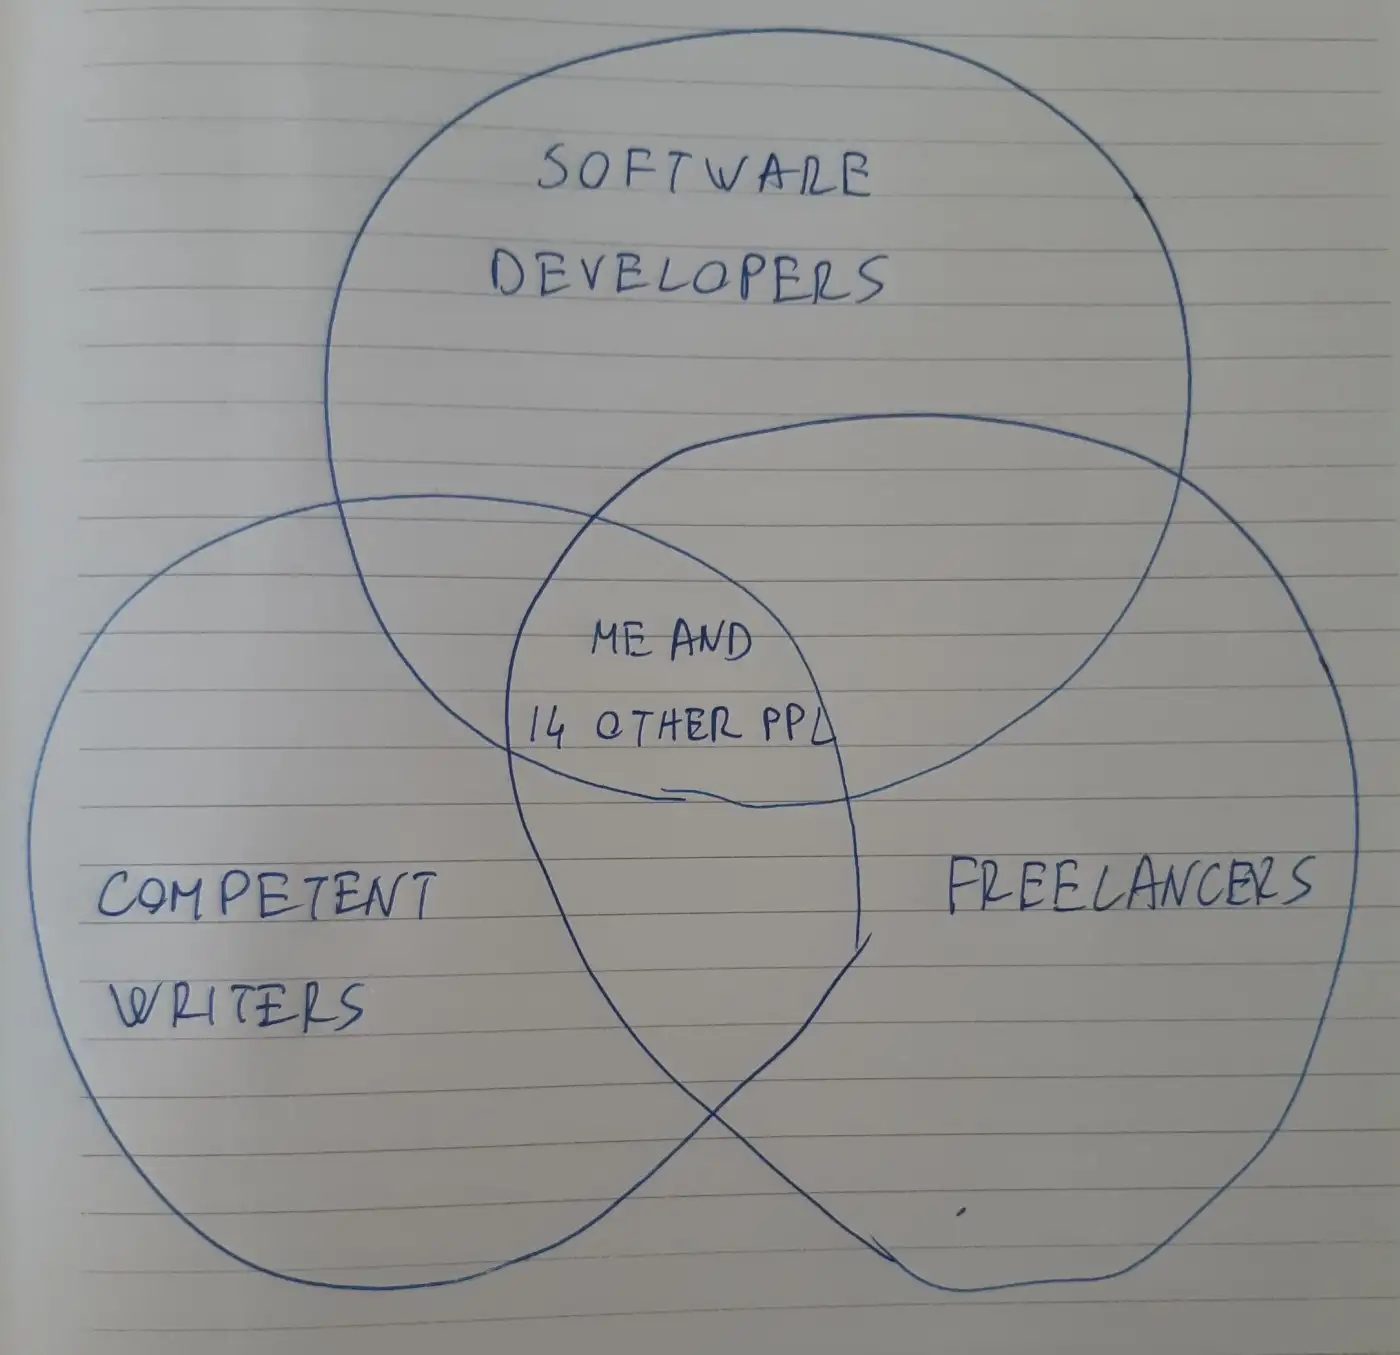 SOFTWARE
DEVELOPERS
ME AND
14 OTHER PPL
COMPETENT
WRITERS
FREELANCERS